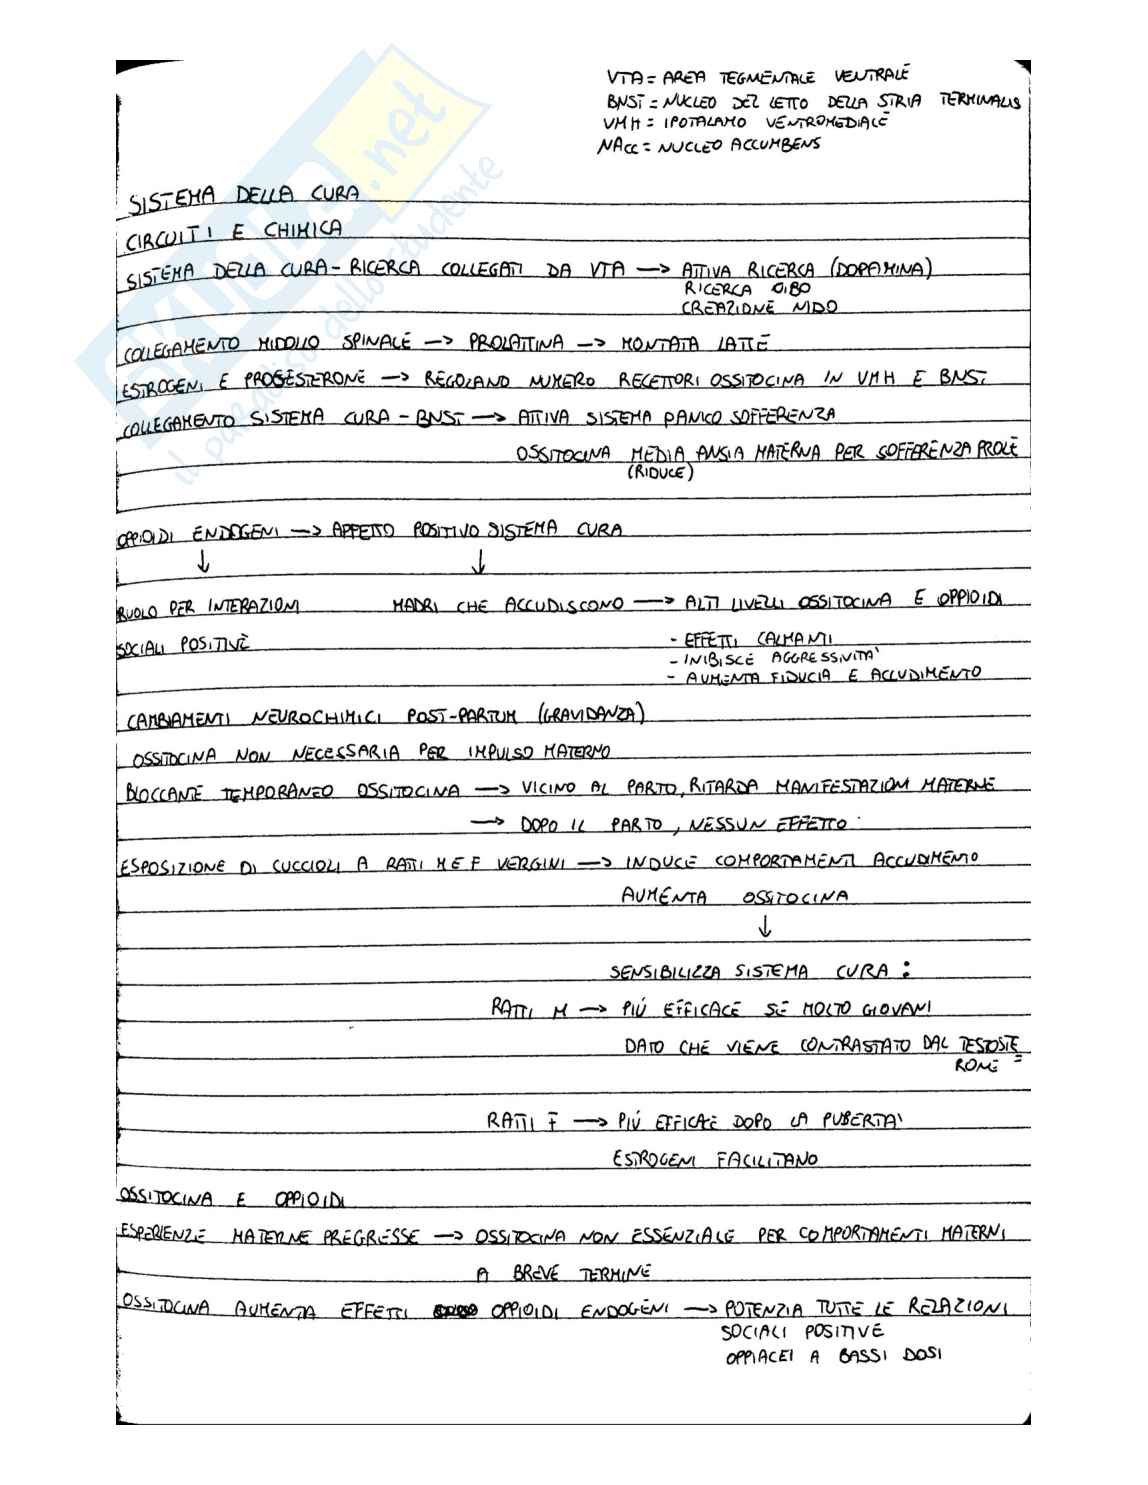 VTA = AREA TEGMENTALE VENTRALE
BNST = NUCLEO DEL LETTO DELLA STRIA TERMINALIS
VMH = IPOTALAMO VENTROMEDIALE
NAcc = NUCLEO ACCUMBENS
SISTEMA DELLA CURA
CIRCUITI E CHIMICA
SISTEMA DELLA CURA - RICERCA COLLEGATI DA VTA → ATTIVA RICERCA (DOPAMINA)
RICERCA CIBO
CREAZIONE NIDO
COLLEGAMENTO MIDOLLO SPINALE → PROLATTINA → MONTATA LATTE
ESTROGENI E PROGESTERONE → REGOLANO NUMERO RECETTORI OSSITOCINA IN VMH E BNST
COLLEGAMENTO SISTEMA CURA - BNST → ATTIVA SISTEMA PANICO SOFFERENZA
OSSITOCINA MEDIA ANSIA MATERNA PER SOFFERENZA PROLE
(RIDUCE)
OPPIOIDI ENDOGENI → AFFETTO POSITIVO SISTEMA CURA
↓ ↓
RUOLO PER INTERAZIONI MADRI CHE ACCUDISCONO → ALTI LIVELLI OSSITOCINA E OPPIOIDI
SOCIALI POSITIVE - EFFETTI CALMANTI
- INIBISCE AGGRESSIVITA'
- AUMENTA FIDUCIA E ACCUDIMENTO
CAMBIAMENTI NEUROCHIMICI POST-PARTUM (GRAVIDANZA)
OSSITOCINA NON NECESSARIA PER IMPULSO MATERNO
BLOCCANTE TEMPORANEO OSSITOCINA → VICINO AL PARTO, RITARDA MANIFESTAZIONI MATERNE
→ DOPO IL PARTO, NESSUN EFFETTO
ESPOSIZIONE DI CUCCIOLI A RATTI M E F VERGINI → INDUCE COMPORTAMENTI ACCUDIMENTO
AUMENTA OSSITOCINA
↓
SENSIBILIZZA SISTEMA CURA :
RATTI M → PIÙ EFFICACE SE MOLTO GIOVANI
DATO CHE VIENE CONTRASTATO DAL TESTOSTE
RONE =
RATTI F → PIÙ EFFICACE DOPO LA PUBERTA'
ESTROGENI FACILITANO
OSSITOCINA E OPPIOIDI
ESPERIENZE MATERNE PREGRESSE → OSSITOCINA NON ESSENZIALE PER COMPORTAMENTI MATERNI
A BREVE TERMINE
OSSITOCINA AUMENTA EFFETTI OPPIOIDI ENDOGENI → POTENZIA TUTTE LE RELAZIONI
SOCIALI POSITIVE
OPPIACEI A BASSI DOSI
SKUOLA.net
il paradiso dello studente